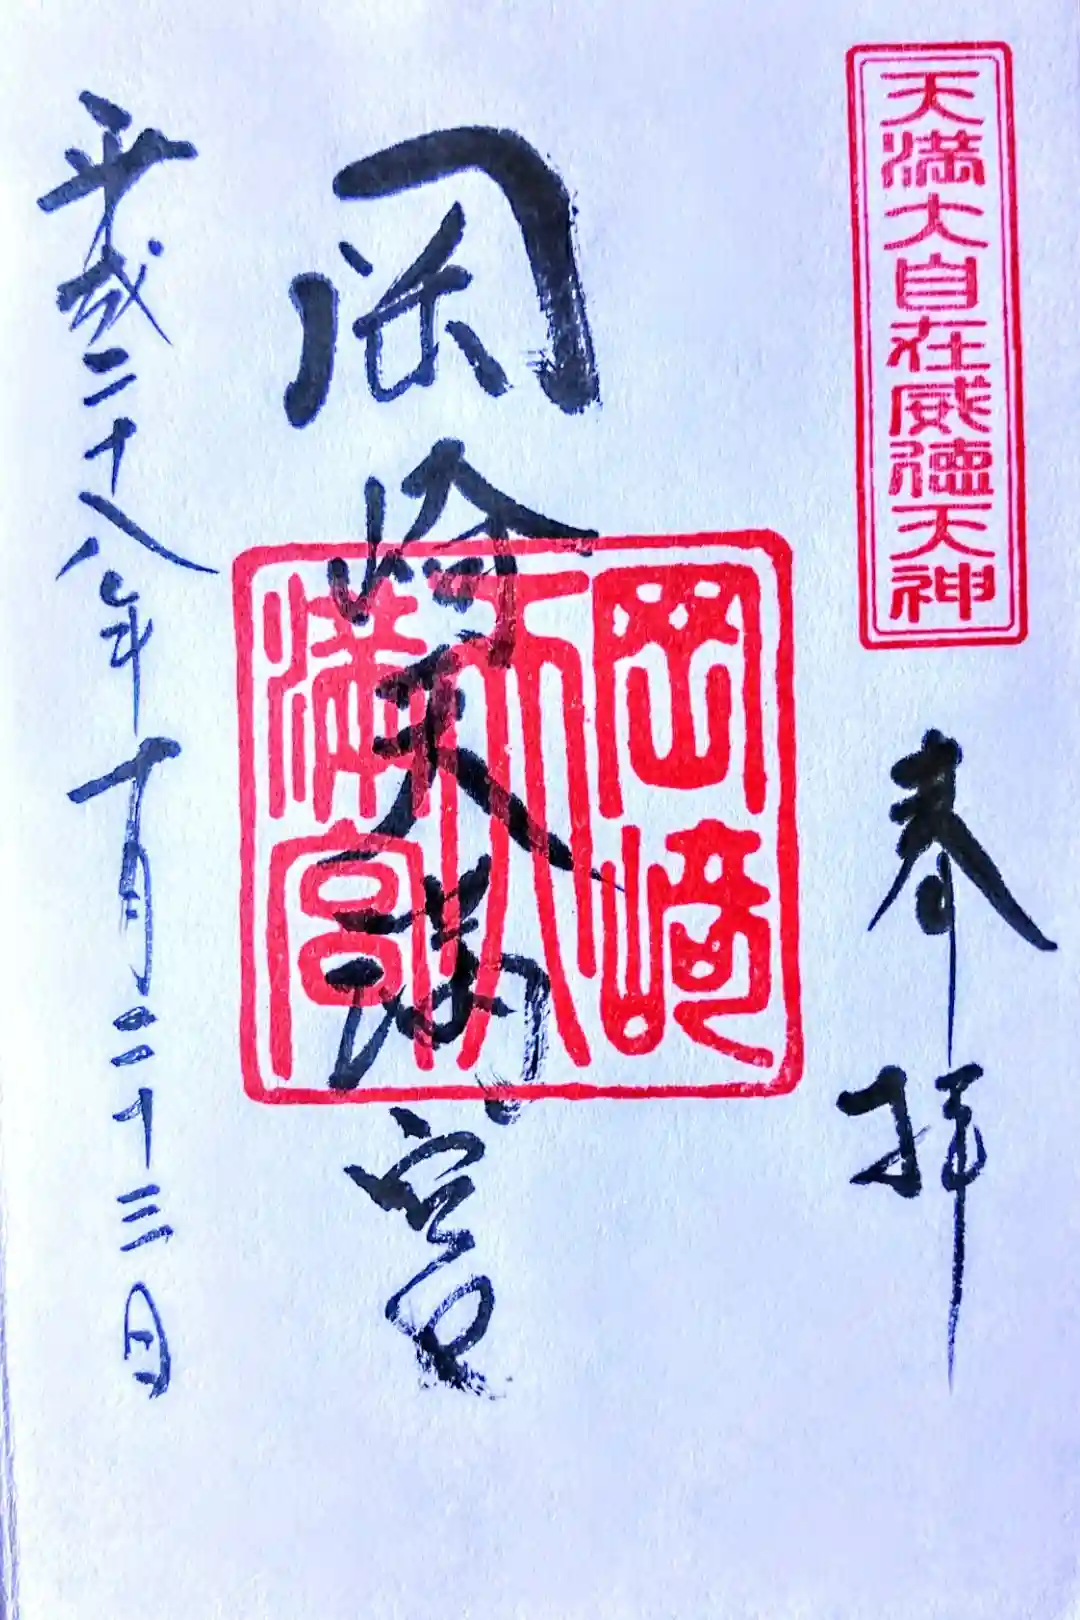 天満大自在威徳天神
奉拝
岡崎天満宮
岡崎
天
満宮
平成二十八年十月二十三日